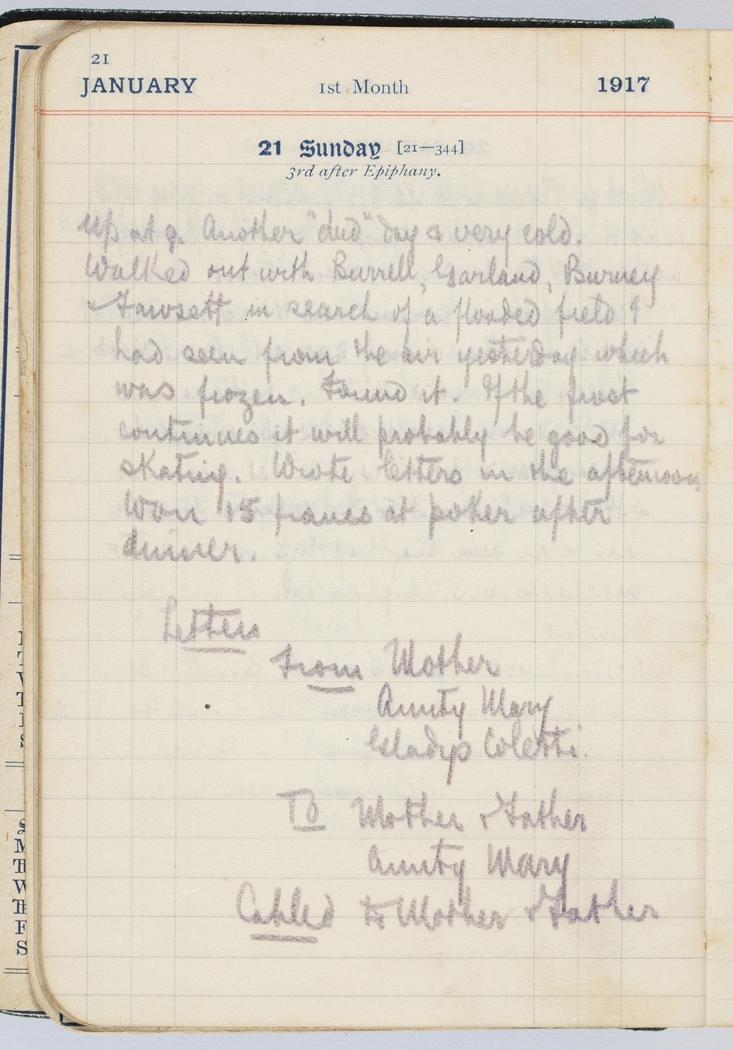 21
JANUARY 1st Month 1917
21 Sunday [21—344]
3rd after Epiphany.
Up at 9. Another "dud" day & very cold.
Walked out with Burrell, Garland, Burney
& Fawsett in search of a flooded field I
had seen from the air yesterday which
was frozen. Found it. If the frost
continues it will probably be good for
skating. Wrote letters in the afternoon
Won 15 francs at poker after
dinner.
Letters
From Mother
Aunty Mary
Gladys Coletti.
To Mother & Father
Aunty Mary
Cabled to Mother & Father